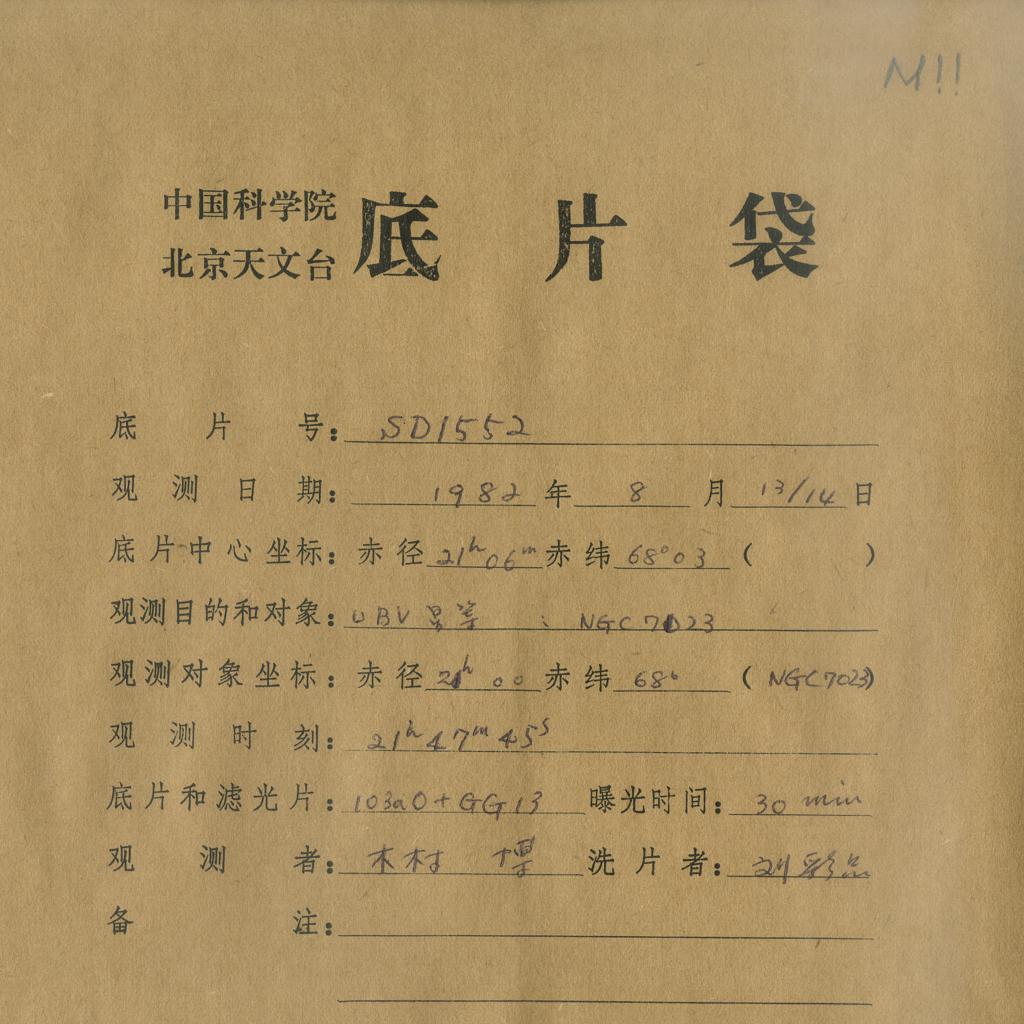 M!!
中国科学院
北京天文台 底片袋
底片号：SD1552
观测日期：1982年8月13/14日
底片中心坐标：赤径21ʰ06ᵐ赤纬68°03（ ）
观测目的和对象：UBV星等：NGC7023
观测对象坐标：赤径21ʰ00赤纬68°（NGC7023）
观测时刻：21ʰ47ᵐ45ˢ
底片和滤光片：103aO+GG13 曝光时间：30 min
观测者：木村 博 洗片者：刘彩品
备注：